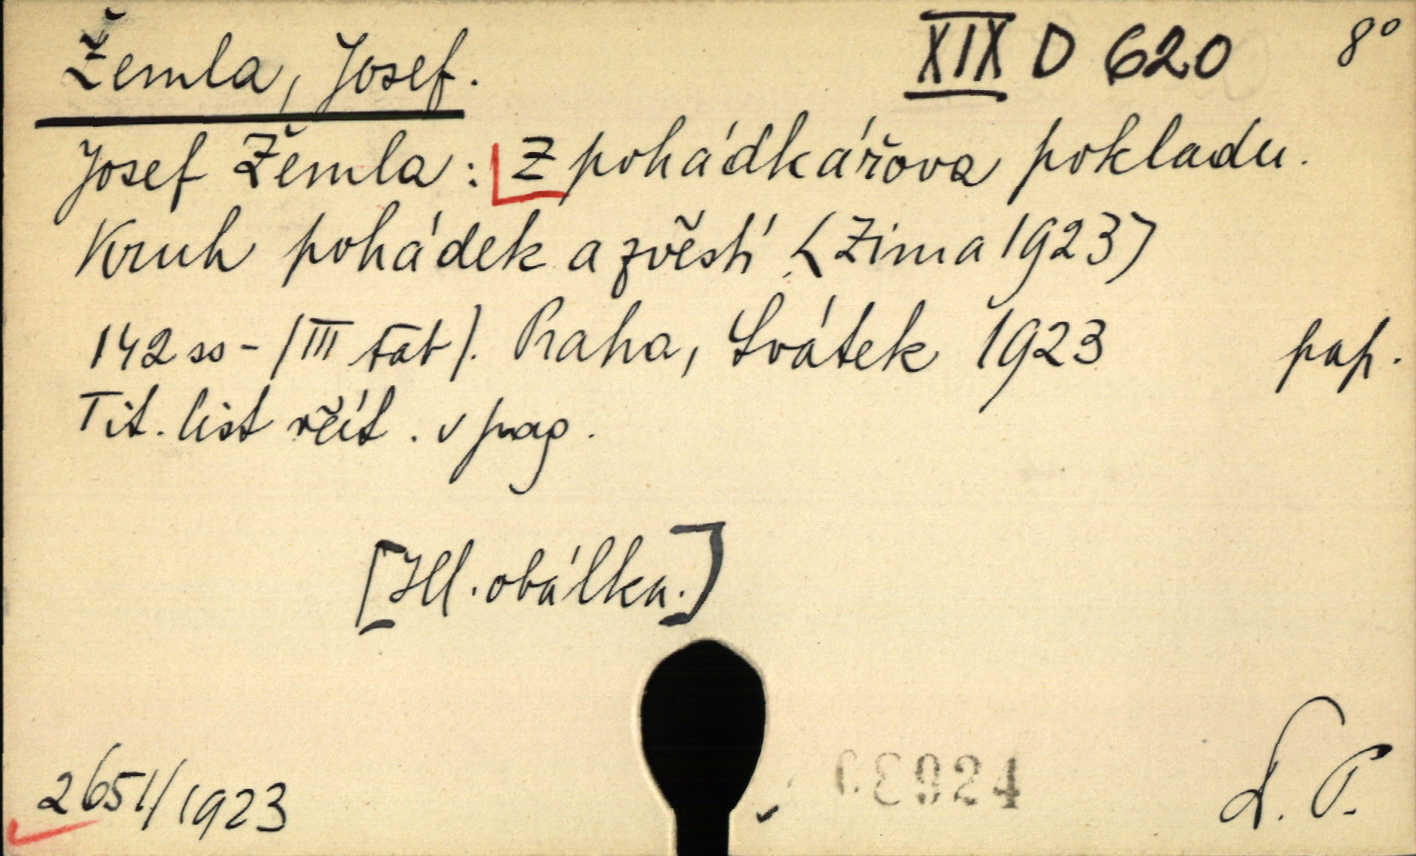 Žemla, Josef.
XIX D 620
8°
Josef Žemla: Z pohádkářova pokladu.
Kruh pohádek a zvěstí <Zima 1923>
142 ss - (III tab). Praha, Svátek 1923
pap.
Tit. list včít. v pag.
[Ill. obálka.]
2651/1923
L. P.